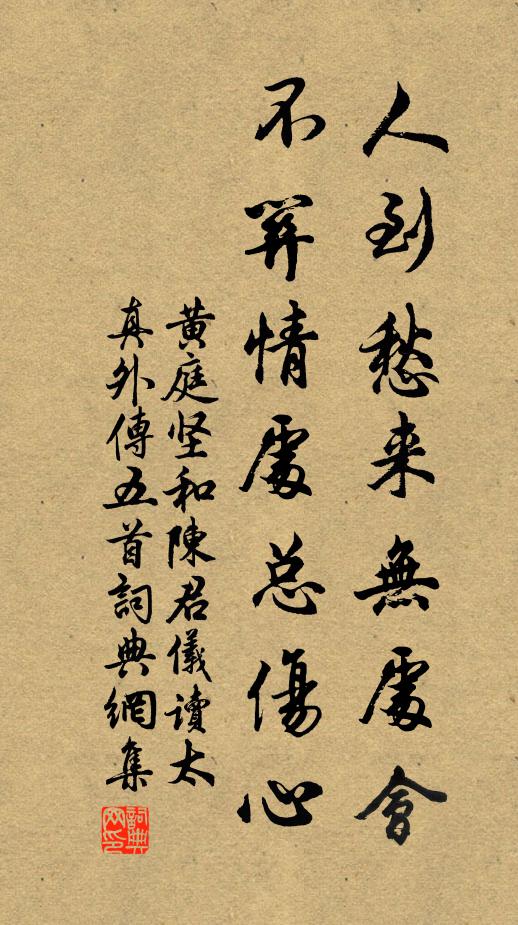 人到愁来無處會
不關情處总傷心
黄庭坚和陳君儀读太
真外傳五首詞典網集
詞典网印